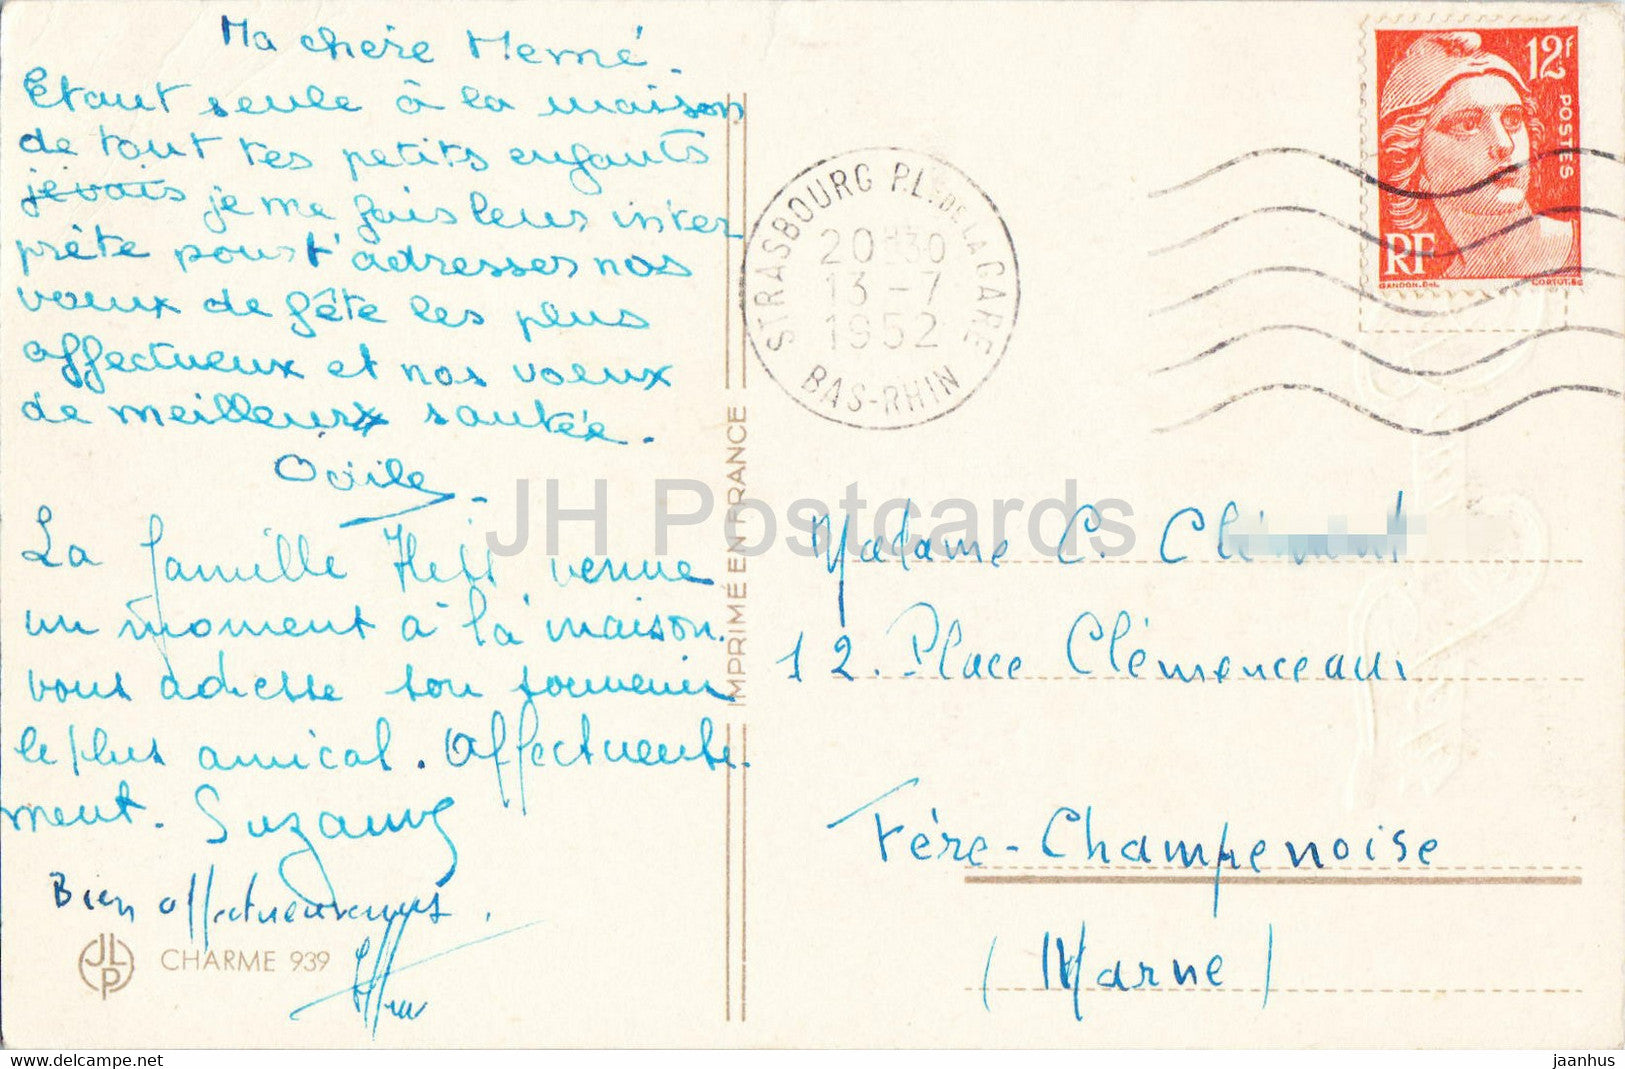 Ma chère Memé.
Etant seule à la maison
de tout tes petits enfants
jevais je me fais leur inter
prète pour t'adresser nos
voeux de fête les plus
affectueux et nos voeux
de meilleurx santée.
Odile
La famille Hess venue
un moment à la maison.
vous adresse son souvenir
le plus amical. Affectueuse-
ment. Suzanne
Bien affectueusement.
JLP CHARME 939
IMPRIMÉ EN FRANCE
STRASBOURG PL. DE LA GARE
20H30
13-7
1952
BAS-RHIN
12F
POSTES
RF
GANDON.DEL CORTOT.SC
Madame C.
12. Place Clémenceau
Fère-Champenoise
(Marne)
JH Postcards
delcampe.net
jaanhus